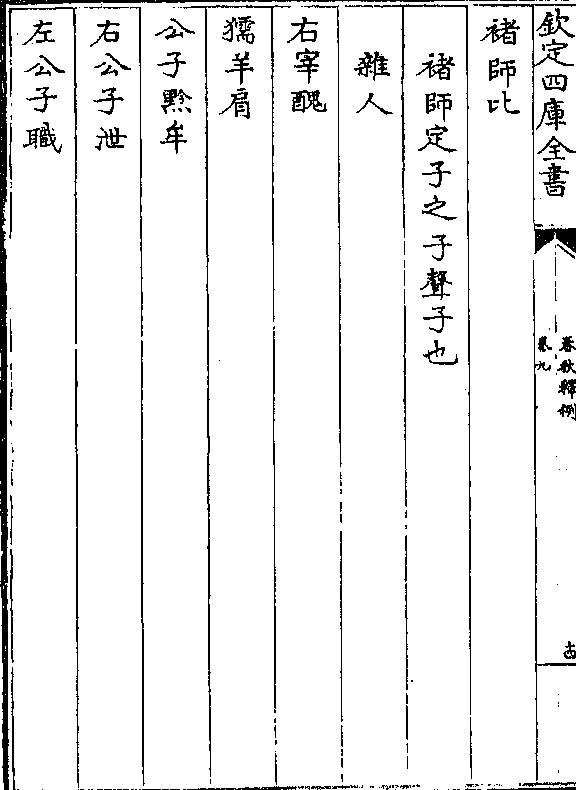 欽定四庫全書
春秋釋例
卷九
十四
褚師比
褚師定子之子聲子也
雜人
右宰醜
獳羊肩
公子黔牟
右公子泄
左公子職